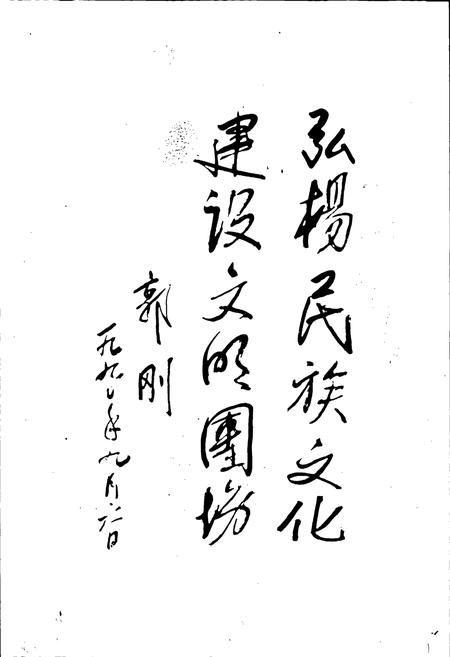 弘楊民族文化
建设文明團场
郭刚
一九九〇年九月六日